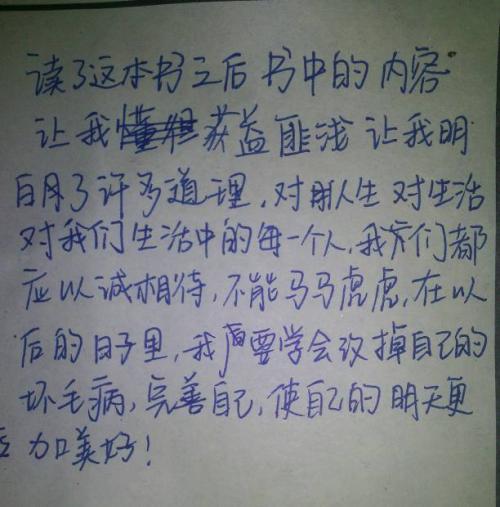 读了这本书之后 书中的内容
让我获益匪浅 让我明
白月了许多道理,对人生 对生活
对我们生活中的每一个人,我们都
应以诚相待,不能马马虎虎,在以
后的日子里,我要学会改掉自己的
坏毛病,完善自己,使自己的明天更
加美好!